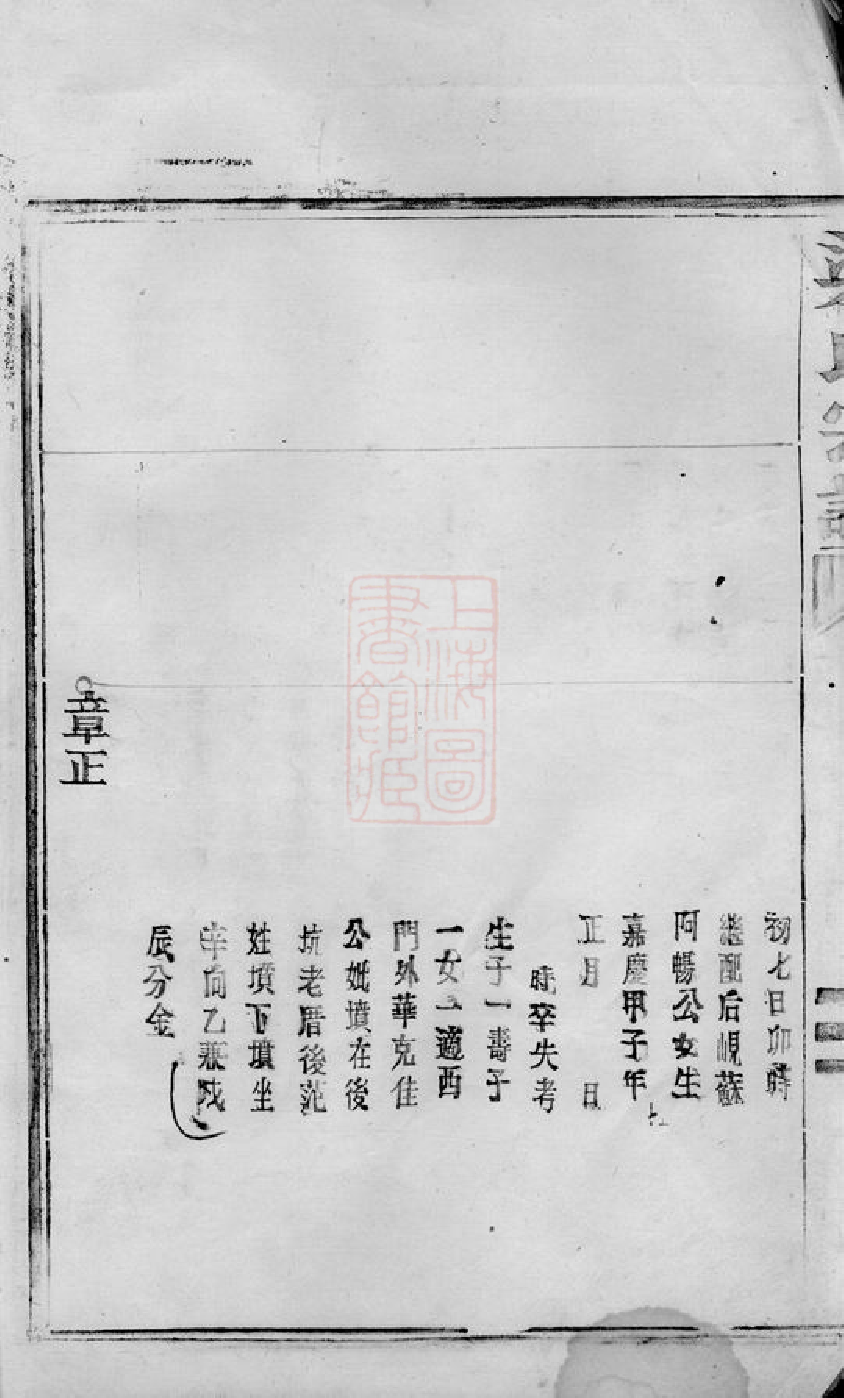 初七日卯時
繼配后峴蘇
阿暢公女生
嘉慶甲子年
正月 日
時卒失考
生子一壽子
一女一適西
門外華克佳
公妣墳在後
坑老厝後范
姓墳下墳坐
辛向乙兼戌
辰分金
章正
上海圖
書館藏